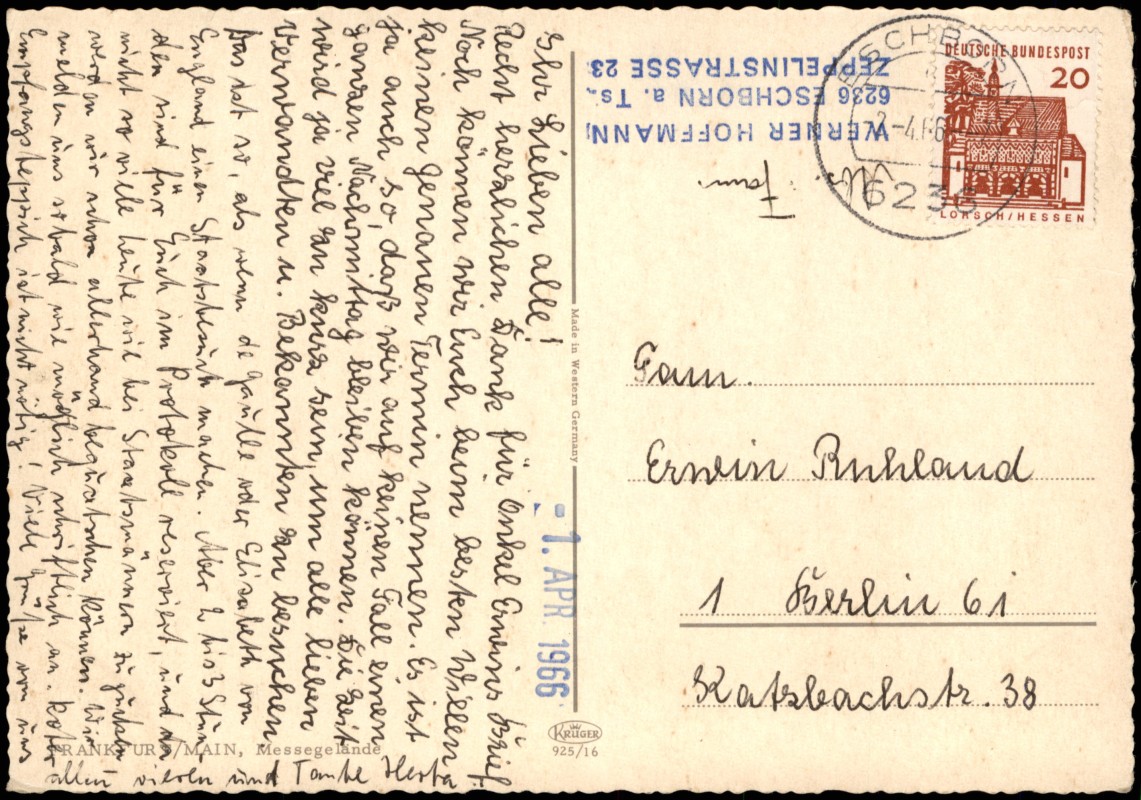 Ihr Lieben alle!
Recht herzlichen Dank für Onkel Erwins Brief.
Noch können wir Euch beim besten Willen
keinen genauen Termin nennen. Es ist
ja auch so, daß wir auf keinen Fall einen
ganzen Nachmittag bleiben können. Die Zeit
wird ja viel zu kurz sein, um alle lieben
Verwandten u. Bekannten zu besuchen.
Das ist so, als wenn de Gaulle oder Elisabeth von
England einen Staatsbesuch machen. Aber 2 bis 3 Stun-
den sind für Euch im Protokoll reserviert, und da
nicht so viele Leute wie bei Staatsmännern zugucken
werden wir schon allerhand klauschen können. Wir
melden uns sobald wie möglich schriftlich an. Roter
Empfangsteppich ist nicht nötig! Viele Grüße von uns
allen vieren und Tante Herta
FRANKFURT/MAIN, Messegelände
Made in Western Germany
- 1. APR. 1966
KRÜGER
925/16
WERNER HOFFMANN
6236 ESCHBORN a. Ts.
ZEPPELINSTRASSE 23
Fam.
ESCHBORN
-4.66
6236
DEUTSCHE BUNDESPOST
20
LORSCH/HESSEN
Fam.
Erwin Ruhland
1 Berlin 61
Katzbachstr. 38